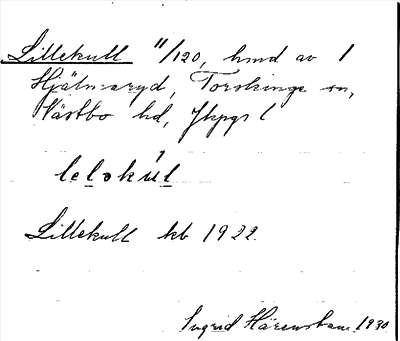 Lillekull 11/120, hmd av 1
Hjälmaryd, Torskinge sn,
Västbo hd, Jkpgs l
leləkúl
Lillekull kb 1922.
Ingrid Härenstam 1930